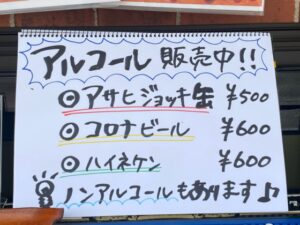 アルコール 販売中!!
◎アサヒジョッキ缶 ¥500
◎コロナビール ¥600
◎ハイネケン ¥600
ノンアルコールもあります♪